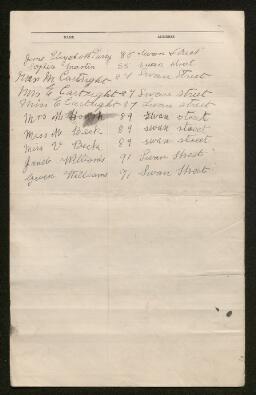 NAME ADDRESS
Jane Elizabeth 85 Swan Street
Sophia Martin 85 Swan street
M Cartright 87 Swan Street
Mrs E Cartright 87 Swan street
Miss E Cartright 87 Swan street
Mrs M 89 Swan street
Miss M Beck 89 swan street
Miss V Beck 89 swan street
Williams 91 Swan Street
Williams 91 Swan Street